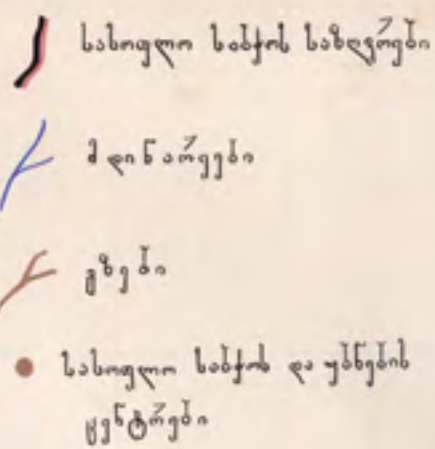 სასოფლო საბჭოს საზღვრები
მდინარეები
გზები
სასოფლო საბჭოს და უბნების
ცენტრები